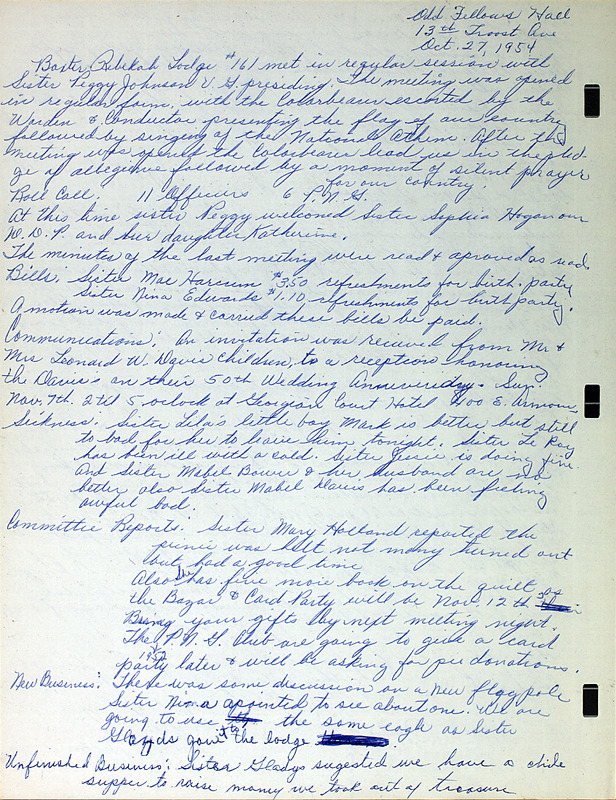 Odd Fellows Hall
13th Troost Ave
Oct. 27, 1954
Baxter Rebekah Lodge #161 met in regular session with
Sister Peggy Johnson V.G. presiding. The meeting was opened
in regular form, with the Colorbearer escorted by the
Warden & Conductor presenting the flag of our country
followed by singing of the National Athem. After the
meeting was opened the Colorbearer lead us in the pled-
ge of allegence followed by a moment of silent prayer
for our country.
Roll Call. 11 Officiers 6 P.N.G.
At this time sister Peggy welcomed Sister Sophia Hogan our
D.D.P. and her daughter Katherine.
The minutes of the last meeting were read & aproved as read.
Bills; Sister Mae Harcum $3.50 refreshments for birth. party
Sister Nina Edwards $1.10 refreshments for birth party.
A motion was made & carried these bills be paid.
Communications; An invitation was recieved from Mr &
Mrs Leonard W. Davis children, to a reception honoring
the Davis's on their 50th Wedding Anniversary. Sun.
Nov. 7th. 2 til 5 oclock at Georgian Court Hotel 400 E. Armour.
Sickness. Sister Lela's little boy Mark is better but still
to bad for her to leave him tonight. Sister Le Roy
has been ill with a cold. Sister Jessie is doing fine.
And Sister Mabel Bower & her husband are no
better also Sister Mabel Davis has been feeling
awful bad.
Committee Reports: Sister Mary Holland reported the
picnic was held not many turned out
but had a good time
Also she has five more book on the quilt
the Bazar & Card Party will be Nov. 12th
Bring your gifts by next meeting night.
The P.N.G. Club are going to give a card
party later & will be asking for pie donations.
New Business: There was some discussion on a new flag pole
Sister Nina apointed to see about one. We are
going to use the same eagle as Sister
Gladys gave to the lodge
Unfinished Business; Sister Gladys sugested we have a chile
supper to raise money we took out of treasure